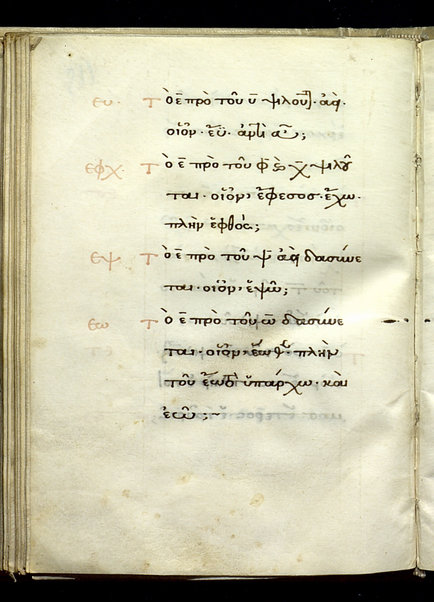 ευ. Τὸ ε̄ πρὸ τοῦ ῡ ψιλοῦτ(αι). ἀεὶ.
οἷον. εὖ. ἀντὶ
εφχ. Τὸ ε̄ πρὸ τοῦ φ̄ καὶ χ̄ ψιλοῦ
ται. οἷον, ἔφεσος. ἔχω.
πλὴν ἑφθός;
εψ Τὸ ε̄ πρὸ τοῦ ψ̄ ἀεὶ δασύνε
ται. οἷον, ἕψω;
εω Τὸ ε̄ πρὸ τοῦ ω̄ δασύνε
ται. οἷον, ἕωθεν. πλὴν
τοῦ ὑπάρχω. καὶ
ἐῶ;~